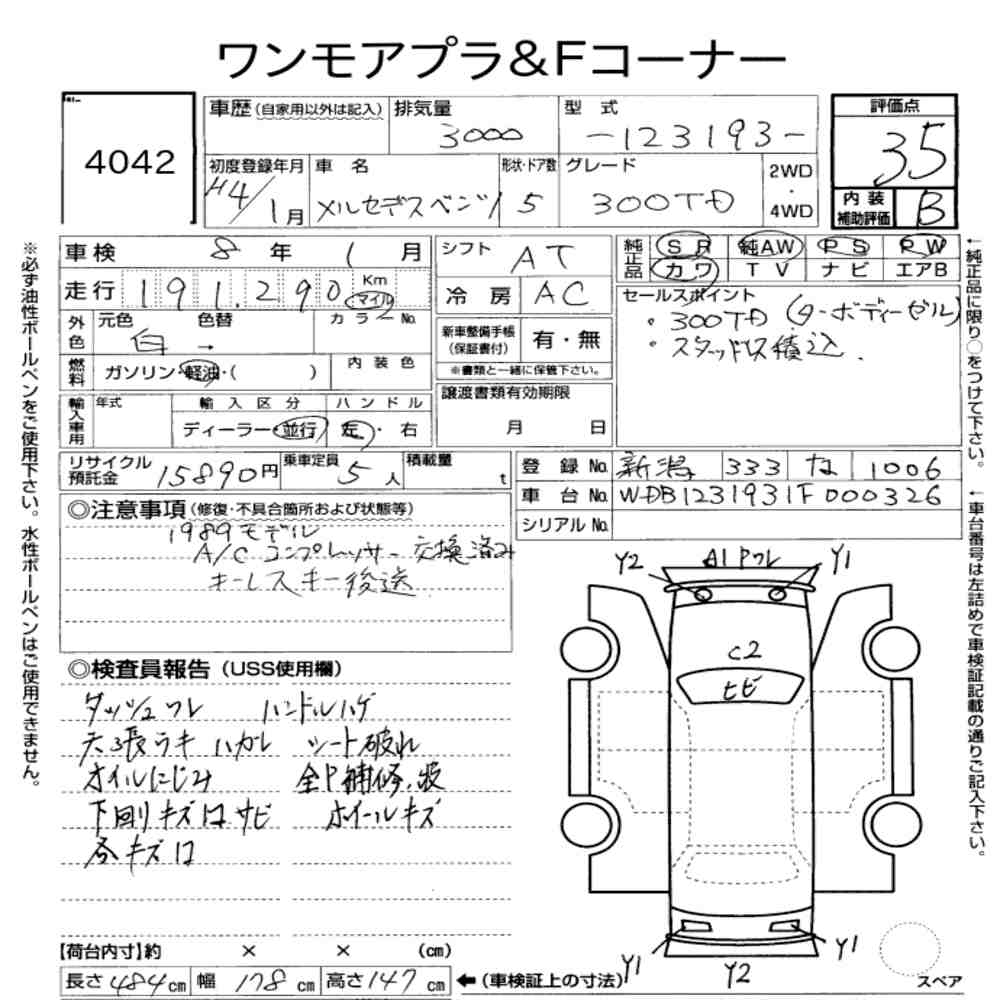 ワンモアプラ&Fコーナー
4042
車歴(自家用以外は記入) 排気量 3000 型式 -123193- 評価点 35
初度登録年月 H4/1月 車名 メルセデスベンツ 形状・ドア数 5 グレード 300TD 2WD・4WD 内装補助評価 B
車検 8年 1月 シフト AT 純正品 SR 純AW PS PW
カワ TV ナビ エアB
走行 191.290 Km マイル 冷房 AC
セールスポイント
・300TD(ターボディーゼル)
・スタッドレス積込.
外色 元色 白 → 色替 カラーNo.
新車整備手帳(保証書付) 有・無
※書類と一緒に保管下さい。
燃料 ガソリン・軽油・( ) 内装色
譲渡書類有効期限 月 日
輸入車用 年式 輸入区分 ハンドル
ディーラー・並行 左・右
リサイクル預託金 15890円 乗車定員 5人 積載量 t
登録No. 新潟 333 な 1006
車台No. WDB1231931F000326
シリアルNo.
◎注意事項(修復・不具合箇所および状態等)
1989モデル
A/Cコンプレッサー交換済み
キーレスキー後送
◎検査員報告(USS使用欄)
ダッシュワレ ハンドルハゲ
天張ラキ ハガレ シート破れ
オイルにじみ 全P補修.波
下回りキズ凹サビ ホイールキズ
各キズ凹
Y2 A1Pワレ Y1
C2
ヒビ
Y1 Y2 Y1
スペア
【荷台内寸】約 × × (cm)
長さ484cm 幅178cm 高さ147cm ←(車検証上の寸法)
※必ず油性ボールペンをご使用下さい。水性ボールペンはご使用できません。
←純正品に限り○をつけて下さい。
←車台番号は左詰めで車検証記載の通りご記入下さい。